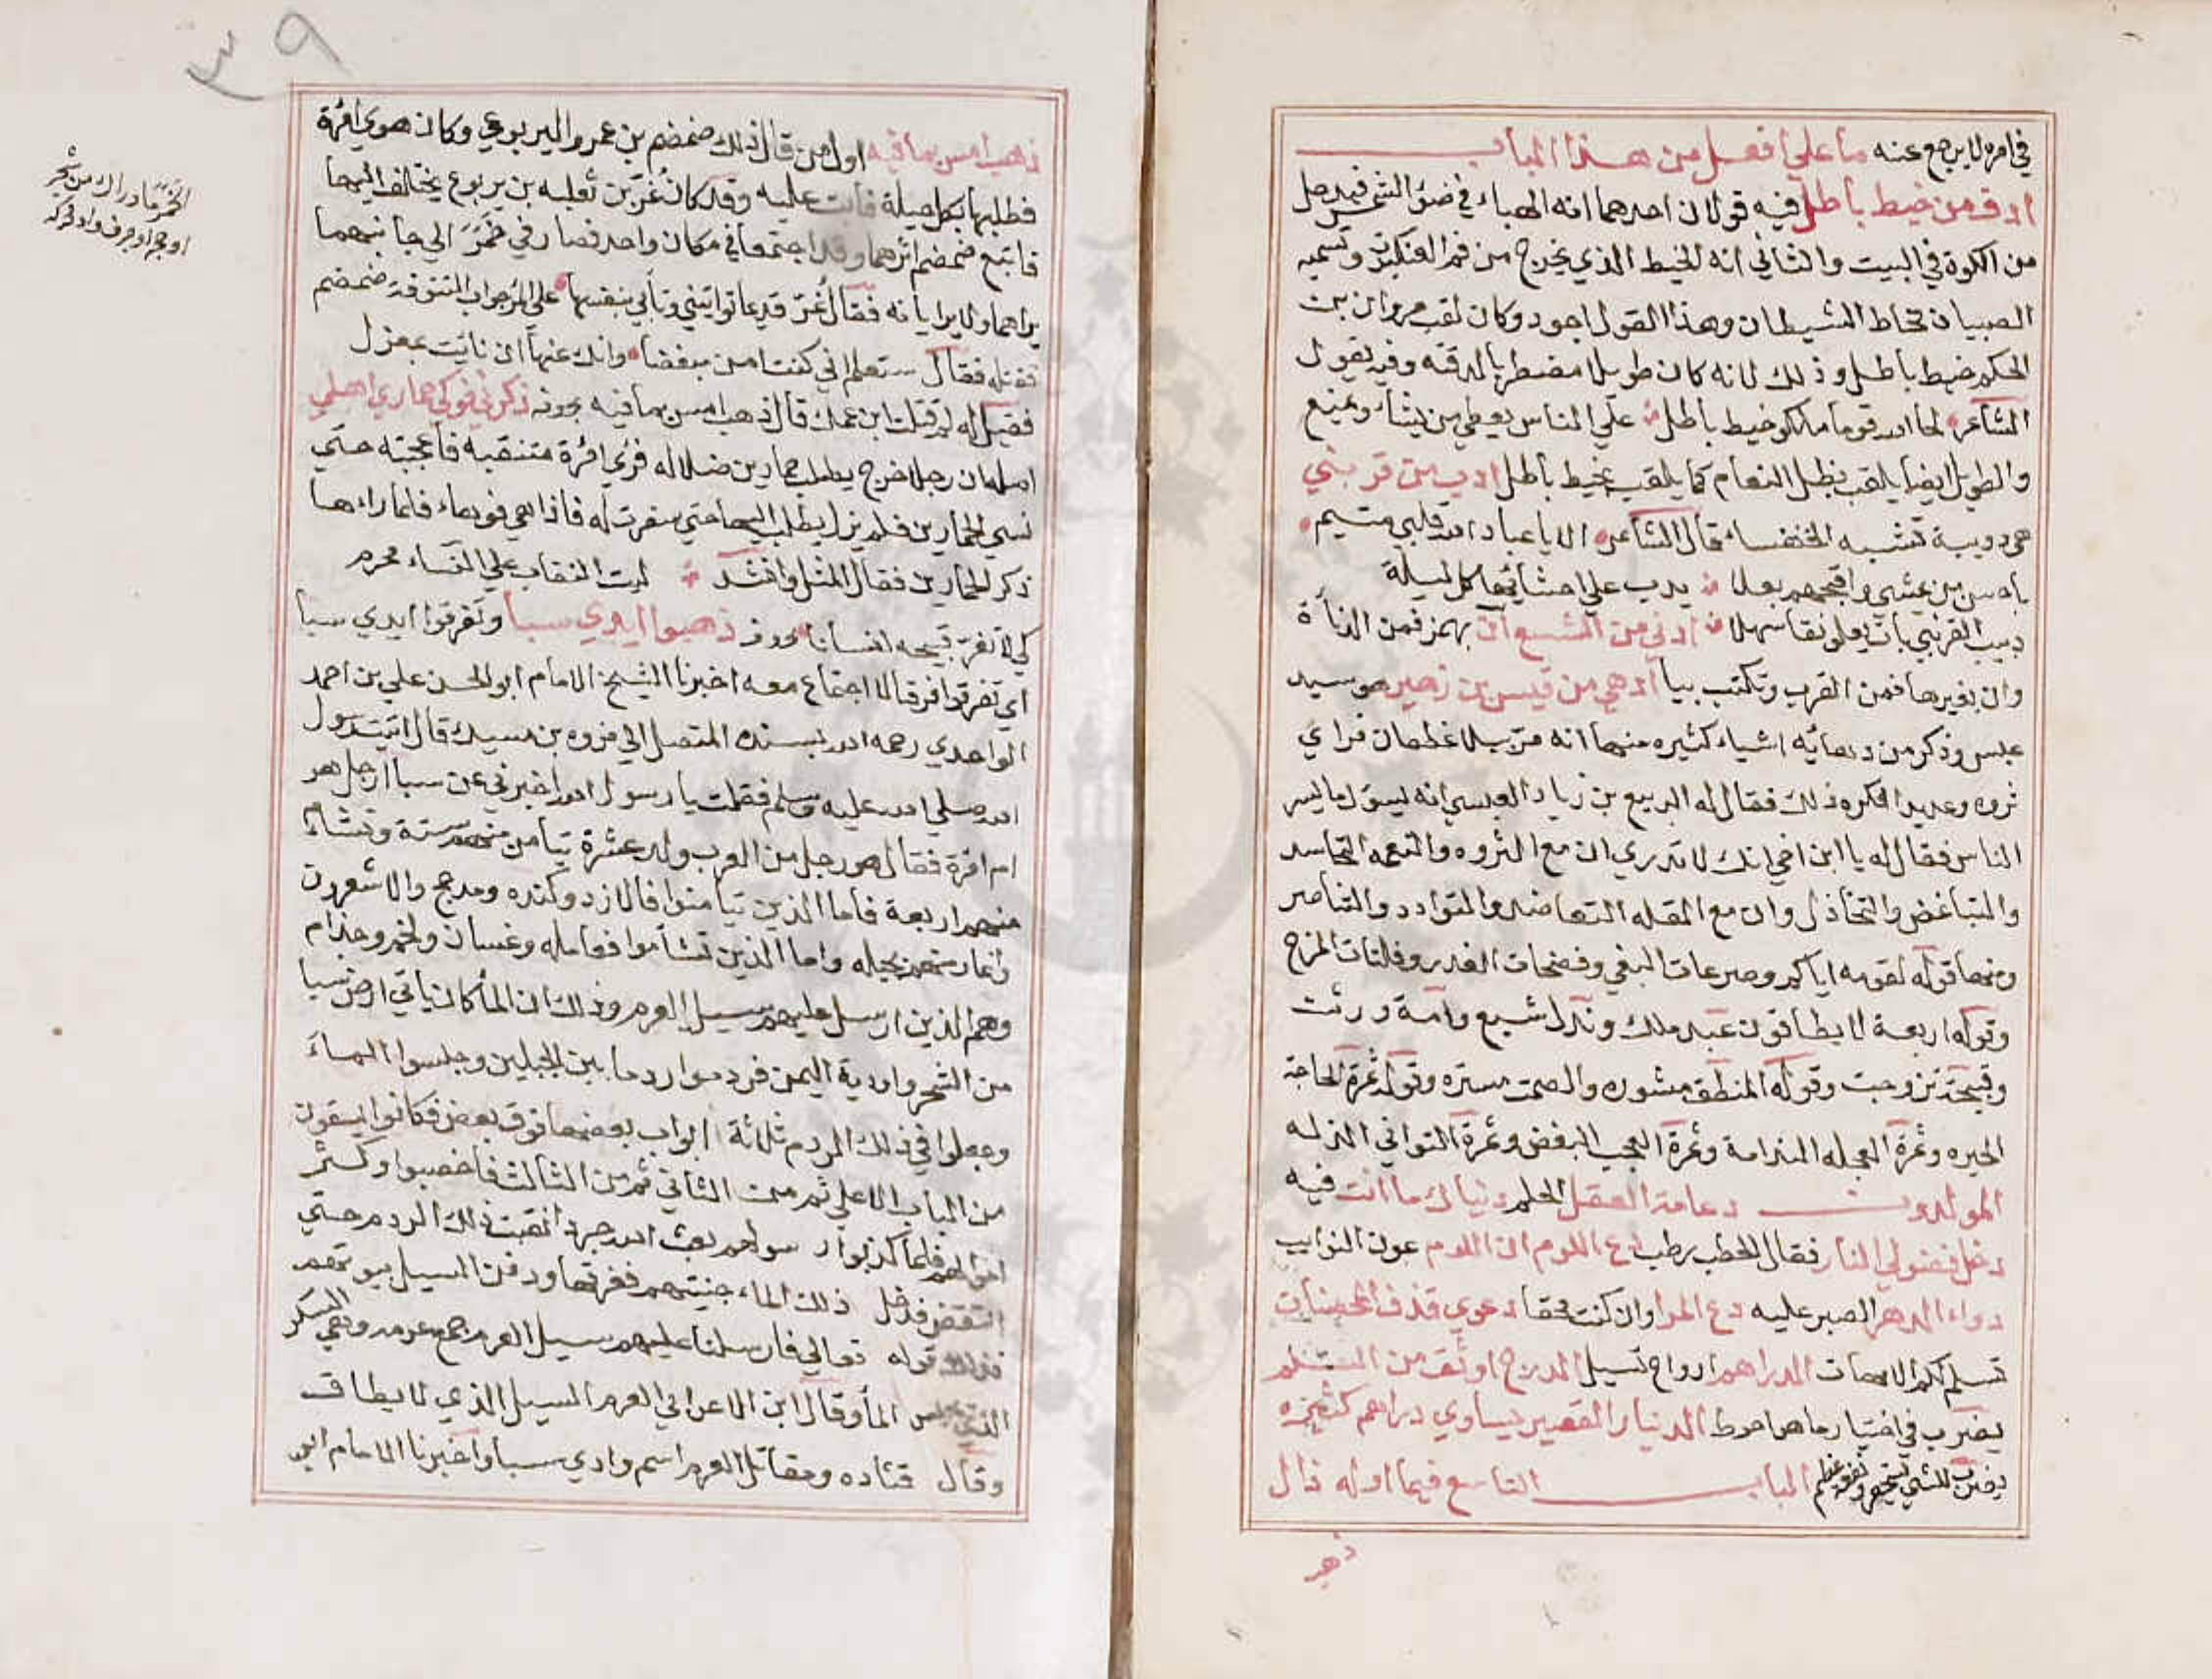 في امره لا يرجع عنه ما علي افعل من هذا الباب
ادق من خيط باطل فيه قولان احدهما انه الهباء في ضوء الشمس فيدخل
من الكوة في البيت والثاني انه الخيط الذي يخرج من فم العنكبوت وتسميه
الصبيان مخاط الشيطان وهذا القول اجود وكان لقب مروان بن
الحكم خيط باطل وذلك لانه كان طويلا مضطربا لدقته وفيه يقول
الشاعر لحا الله قوما ملكو خيط باطل علي الناس يعطي من يشاء ويمنع
والطويل ايضا يلقب بظل النعام كما يلقب بخيط باطل ادب من قرنبي
هي دويبة تشبه الخنفساء قال الشاعر الا يا عباد الله قلبي متيم
باحسن من يمشي واقبحهم بعلا يدب علي احشائها كل ليلة
دبيب القرنبي بات يعلو نقا سهلا ادني من الشسع ان بهمز فمن الدناءة
وان بغيرها فمن القرب وتكتب بيا ادهي من قيس بن زهير هو سيد
عبس وذكر من دهائه اشياء كثيره منها انه مر ببلاد غطفان فراي
ثروه وعديدا فكره ذلك فقال له الربيع بن زياد العبسي انه يسؤك ما يسر
الناس فقال له يا ابن اخي انك لا تدري ان مع الثروه والنعمه التحاسد
والتباغض والتخاذل وان مع القله التعاضد والتوادد والتناصر
ومنها قوله لقومه اياكم وصرعات البغي وفضحات الغدر وفلتات المزح
وقوله اربعة لا يطاقون عبد ملك ونذل شبع وامة ورثت
وقبيحة تزوجت وقوله المنطق مشهره والصمت مستره وقوله ثمرة الحاجة
الحيره وثمرة العجله الندامة وثمرة العجب البغض وثمرة التواني الذله
المولدون دعامة العقل الحلم دنياك ما انت فيه
دخل فضولي النار فقال الحطب رطب دع اللوم ان اللوم عون النوايب
دواء الدهر الصبر عليه دع المرا وان كنت محقا دعوي قذف المحصنات
تسلم لكم الامهات الدراهم ارواح تسيل الدرج اوثق من السلم
يضرب في اختيار ما هو احوط الدينار القصير يساوي دراهم كثيره
يضرب للشي يستحقر ونفعه عظيم الباب التاسع فيما اوله ذال
ذهب
٣٩
ذهب امس بما فيه اول من قال ذلك ضمضم بن عمرو اليربوعي وكان هوي امرة
فطلبها بكل حيلة فابت عليه وقد كان غر بن ثعلبه بن يربوع يختلف اليها
فاتبع ضمضم اثرهما وقد اجتمعا في مكان واحد فصار في خمر الي جانبهما
يراهما ولا يرايانه فقال غر قديما تواتيني وتأبي بنفسها علي المرء جواب التنوفة ضمضم
فقتله فقال ستعلم اني كنت امن مبغضا وانك عنها ان نايت بمعزل
فقيل له لم قتلت ابن عمك قال ذهب امس بما فيه ذكرني فوكي حماري اهلي
اصله ان رجلا خرج يطلب حمارين ضلا له فرٔي امرة متنقبه فاعجبته حتي
نسي الحمارين فلم يزل يطلب اليها حتي سفرت له فاذا هي فوهاء فلما راءها
ذكر الحمارين فقال المثل وانشد ليت النقاب علي النساء محرم
كي لا تغر قبيحه انسانا ذهبوا ايدي سبا وتفرقوا ايدي سبا
اي تفرقوا فرقا لا اجتماع معه اخبرنا الشيخ الامام ابو الحسن علي بن احمد
الواحدي رحمه الله بسنده المتصل الي فروه بن مسيك قال اتيت رسول
الله صلي الله عليه وسلم فقلت يا رسول الله اخبرني عن سبا ارجل هو
ام امرة فقال هو رجل من العرب ولد عشرة تيامن منهم ستة وتشاءم
منهم اربعة فاما الذين تيامنوا فالازد وكنده ومدحج والاشعرون
وانمار منهم بجيله واما الذين تشأموا فعامله وغسان ولخم وجذام
وهم الذين ارسل عليهم سيل العرم وذلك ان الماء كان ياتي ارض سبا
من الشحر واودية اليمن فردموا ردما بين الجبلين وحبسوا الماء
وجعلوا في ذلك الردم ثلاثة ابواب بعضها فوق بعض فكانوا يسقون
من الباب الاعلي ثم من الثاني ثم من الثالث فاخصبوا وكثر
اموالهم فلما كذبوا رسولهم بعث الله جرذا نقبت ذلك الردم حتي
انتقض فدخل ذلك الماء جنتيهم فغرقها ودفن السيل بيوتهم
فذلك قوله تعالي فارسلنا عليهم سيل العرم جمع عرمه وهي السكر
الذي يحبس الماء وقال ابن الاعرابي العرم السيل الذي لا يطاق
وقال قتاده ومقاتل العرم اسم وادي سبا واخبرنا الامام ابو
الخمر ما وراك من شجر
او جبل او جرف واد